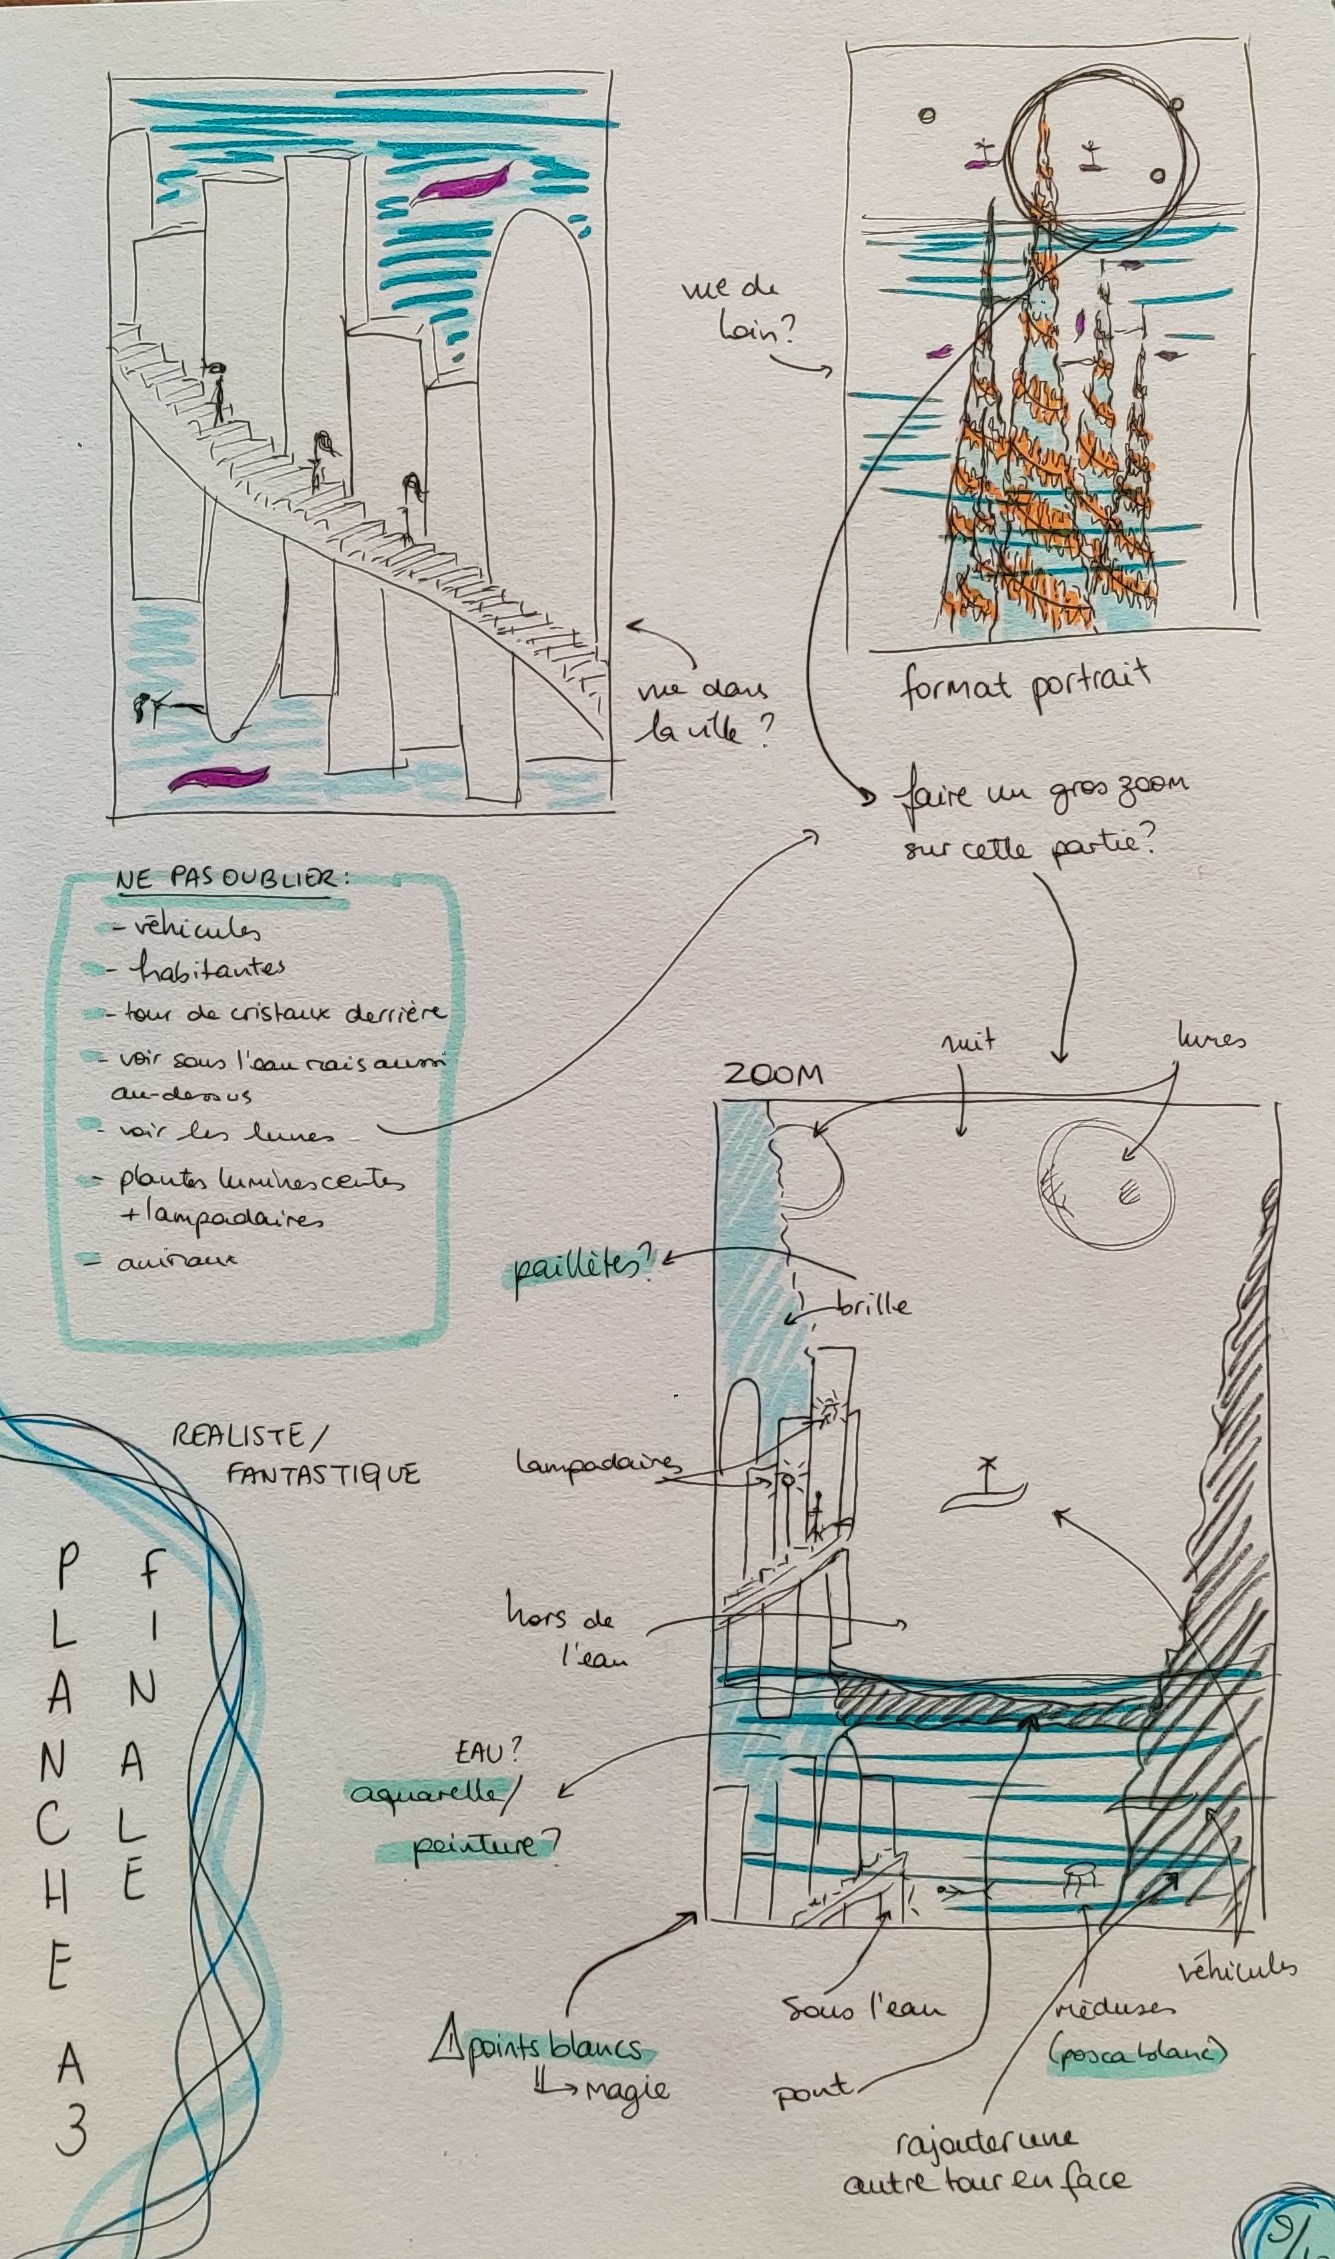 vue de
loin?
vue dans
la ville ?
format portrait
faire un gros zoom
sur cette partie?
NE PAS OUBLIER :
- véhicules
- habitantes
- tour de cristaux derrière
- voir sous l'eau mais aussi
au-dessus
- voir les lunes
- plantes luminescentes
+ lampadaires
- animaux
REALISTE/
FANTASTIQUE
PLANCHE A3
FINALE
ZOOM
nuit
lunes
paillètes?
brille
lampadaires
hors de
l'eau
EAU?
aquarelle/
peinture?
⚠ points blancs
↳ magie
sous l'eau
pont
méduses
(posca blanc)
véhicules
rajouter une
autre tour en face
9/